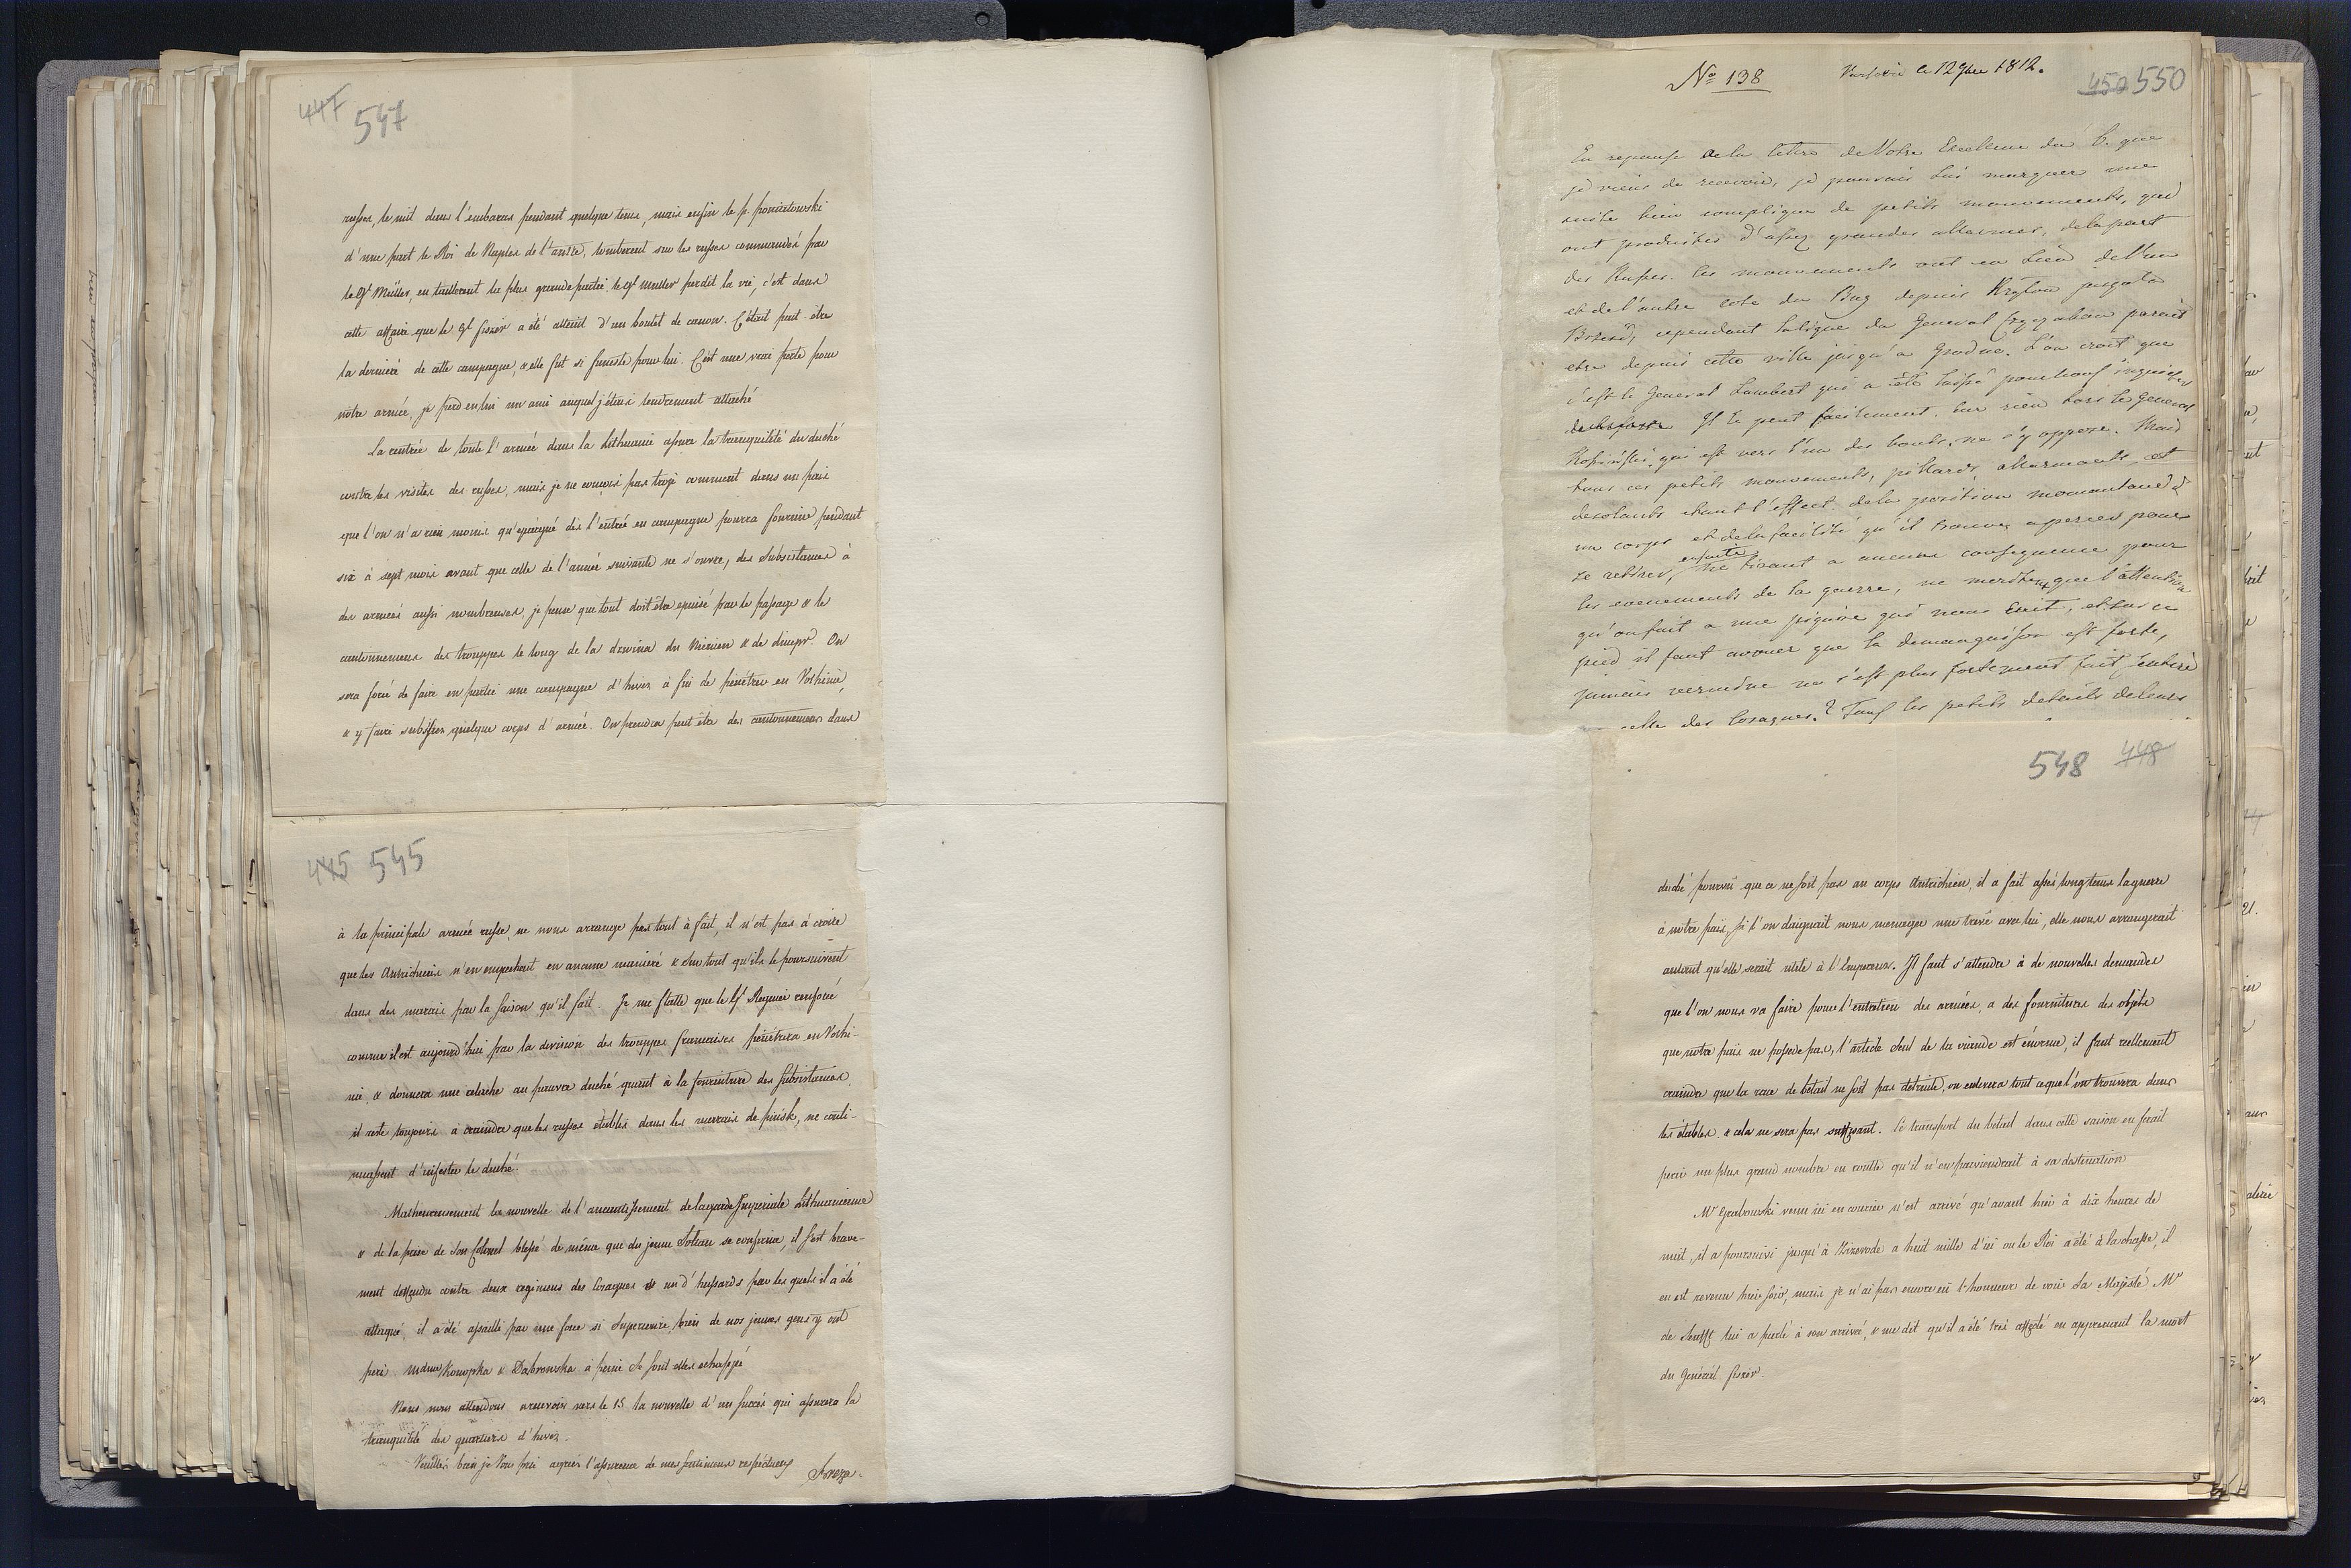 447 547
russes, le mit dans l'embaras pendant quelque tems, mais enfin le p. poniatowski
d'une part le Roi de Naples de l'autre, tomberent sur les russes commandés par
le Gl Müller, en taillerent la plus grande partie, le gl muller perdit la vie, c'est dans
cette affaire que le gl fiszer a été atteint d'un boulet de canon. C'était peut-être
la derniere de cette campagne, & elle fut si funeste pour lui. C'est une vrai perte pour
nôtre armée, je perd en lui un ami auquel j'étais tendrement attaché
La rentrée de toute l'armée dans la Lithuanie assure la tranquilité du duché
contre les visites des russes, mais je ne conçois pas trop comment dans un païs
que l'on n'a rien moins qu'epargné dès l'entrée en campagne pourra fournir pendant
six à sept mois avant que celle de l'année suivante ne s'ouvre, des subsistances à
des armées aussi nombreuses, je pense que tout doit être epuisé par le passage & le
cantonnemens des trouppes le long de la dzwina du Niemen & de dniepr. On
sera forcé de faire en partie une campagne d'hiver à fin de penétrer en Volhinie,
& y faire subsister quelque corps d'armée. On prendra peut être des cantonnemens dans
445 545
à la principale armée russe, ne nous arrange pas tout à fait, il n'est pas à croire
que les Autrichiens n'en empechent en aucune maniere & sur tout qu'ils le poursuivent
dans des marais par la saison qu'il fait. Je me flatte que le Gl Reynier renforcé
comme il est aujourd'hui par la division des trouppes françaises penétrera en Volhi-
nie, & donnera une relache au pauvre duché quant à la fourniture des subsistances,
il reste toujours à craindre que les russes établis dans les marais de pinsk, ne conti-
nuassent d'infester le duché.
Malheureusement la nouvelle de l'aneantissement de la garde Imperiale Lithuanienne
& de la prise de son Colonel blessé de même que du jeune Soltan se confirma, il s'est brave-
ment deffendu contre deux regimens des Cosaques & un d'hussards par les quels il a été
attaqué, il a été assailli par une force si superieure, bien de nos jeunes gens y ont
peri. mdmes Konopka & Dabrowska à peine se sont elles echappé
Nous nous attendons a recevoir vers le 15 la nouvelle d'un succès qui assurera la
tranquilité des quartiers d'hiver.
Veuillés bien je Vous prie agréer l'assurance de mes sentimens respectueux
N° 138 Varsovie ce 12 9bre 1812. 450 550
En reponse de la lettre de Votre Excellence du 6. que
je viens de recevoir, je pourrais lui marquer une
suite bien compliquee de petits mouvements, qui
ont produites d'assez grandes allarmes, de la part
des Russes. Ces mouvements ont eu lieu de l'un
et de l'autre coté du Bug depuis jusqu'a
cependant la ligne du General parait
etre depuis cette ville jusqu'a Grodno. L'on croit que
c'est le General Lambert qui a été laissé pour nous inquieter
Il le peut facilement, car rien hors le General
Kosinski, qui est vers l'un des bouts, ne s'y oppose. Mais
tous ces petits mouvements, pillards allarmants, et
desolants etant l'effect de la position momentanée d'
un corps et de la facilité qu'il trouve a percer pour
se retirer, ensuite ne tirant a aucune consequence pour
les evenements de la guerre, ne merite que l'attention
qu'on fait a une piqure qui nous cuit, et sur ce
pied il faut avouer que la demangaison est forte,
jamais vermine ne s'est plus fortement fait sentir
celle des Cosaques. Tous les petits details de leurs
548 448
duché pourvû que ce ne soit pas un corps Autrichien, il a fait assés longtems la guerre
à notre païs, si l'on daignait nous menager une treve avec lui, elle nous arrangerait
autant qu'elle serait utile à l'Empereur. Il faut s'attendre à de nouvelles demandes
que l'on nous va faire pour l'entretien des armées, a des fournitures des objets
que notre païs ne possede pas, l'article seul de la viande est énorme, il faut reellement
craindre que la race de betail ne soit pas detruite, on enlevera tout ce que l'on trouvera dans
les étables, & cela ne sera pas suffisant. Le transport du betail dans cette saison en ferait
perir un plus grand nombre en routte qu'il n'en parviendrait à sa destination
Mr Grabowski venu ici en courier n'est arrivé qu'avant hier à dix heures de
nuit, il a poursuivi jusqu'à a huit mille d'ici ou le Roi a été à la chasse, il
en est revenu hier soir, mais je n'ai pas encore eû l'honneur de voir Sa Majesté. Mr
de Senfft lui a parlé à son arrivé, & me dit qu'il a été très affecté en apprenant la mort
du Général fiszer.